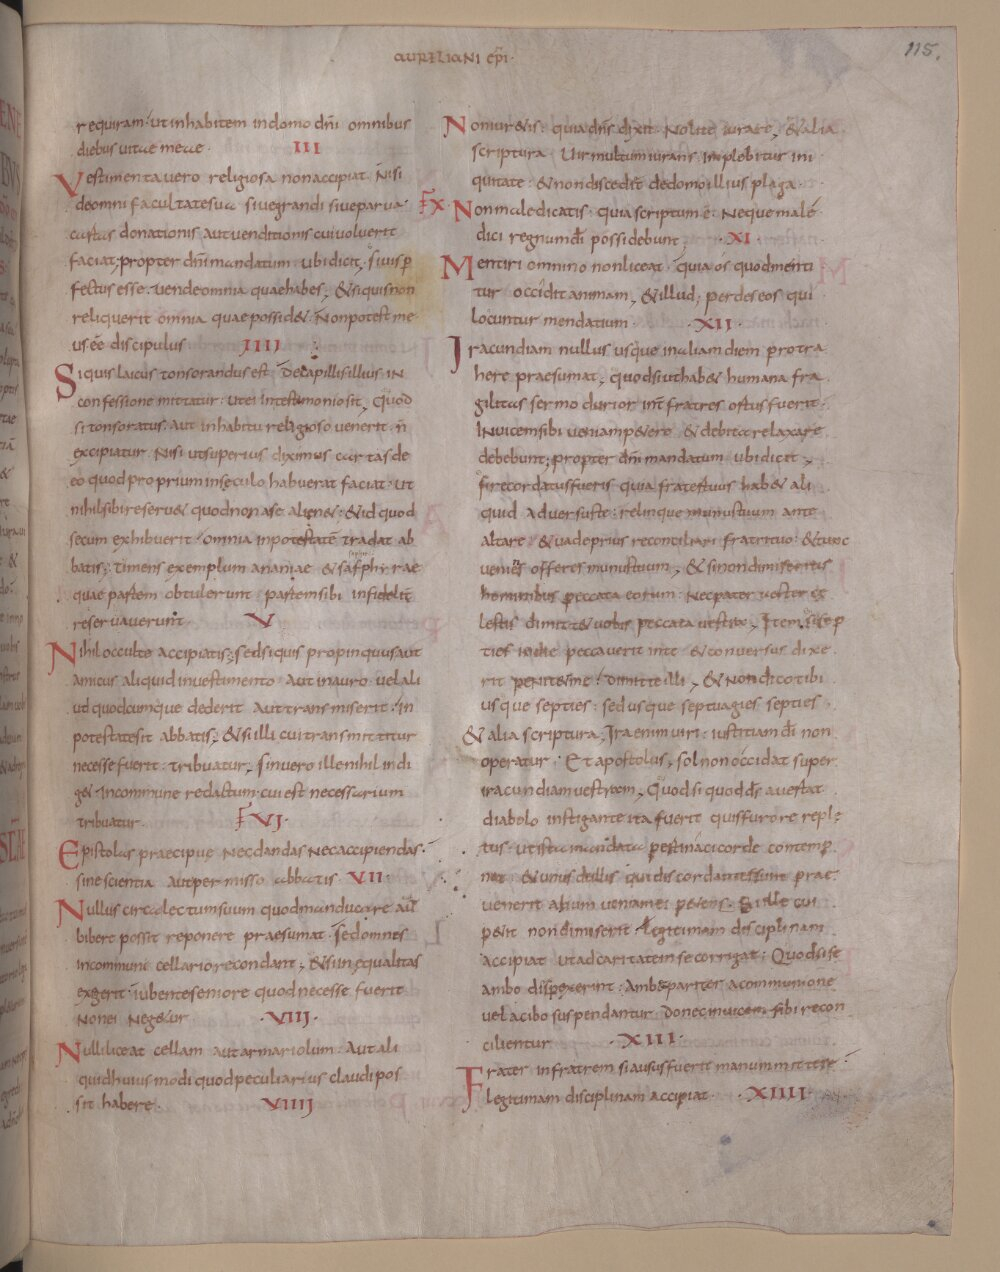 AURELIANI EP̄I·
115.
requiram· ut inhabitem in domo dn̄i omnibus
diebus uitae meae· III
Vestimenta uero religiosa non accipiat· Nisi
de omni facultate sua siue grandi siue parua
cartas donationis aut uenditionis cui uoluerit
faciat, propter dn̄i mandatum ubi dicit, si uis ꝑ
fectus esse· uende omnia quae habes, & si quis non
reliquerit omnia quae possid&· Non potest me
us eē discipulus IIII
Si quis laicus tonsorandus est, De capillis illius IN
confessione mittatur· ut ei In testimonio sit, quod
si tonsoratus Aut in habitu religioso uenerit· n̄
excipiatur Nisi ut superius diximus cartas de
eo quod proprium in seculo habuerat faciat· ut
nihil sibi reseru& quod non a se alien&· & id quod
secum exhibuerit· omnia in potestatē tradat ab
batis, timens exemplum ananiae & saphirae
quae partem obtulerunt· partem sibi infidelit̄
reseruauerunt· V
Nihil occulte accipiatis; sed si quis propinquus aut
amicus aliquid in uestimento· Aut in auro· uel ali
ud quodcumque dederit Aut transmiserit· in
potestate sit abbatis, & si illi cui transmittitur
necesse fuerit· tribuatur, sin uero ille nihil indi
g& In commune redactum· cui est necessarium
tribuatur· VI·
Epistolas praecipue Nec dandas Nec accipiendas·
sine scientia aut permisso abbatis· VII
Nullus circa lectum suum quod manducare aut̄
bibere possit reponere praesumat· Sed omnes
in communi cellario recondant, & si inequalitas
exgerit· iubente seniore quod necesse fuerit
Non ei Neg&ur ·VIII·
Nulli liceat cellam aut armariolum· Aut ali
quid huiusmodi quod peculiarius claudi pos
sit habere· VIIII
Non iur&is· quia dn̄s dixit Nolite iurare, & alia
scriptura Uir multum iurans implebitur ini
quitate· & non discedit de domo illius plaga·
X Non maledicatis· quia scriptum ē· Neque male
dici regnum dī possidebunt ·XI·
Mentiri omnino non liceat· quia os quod menti
tur occidit animam, & illud, perdes eos qui
locuntur mendatium· ·XII·
Iracundiam nullus usque in aliam diem protra
here praesumat, quod si ut hab& humana fra
gilitas sermo durior int̄ fratres ortus fuerit·
INuicem sibi ueniam p&ere & debita relaxare
debebunt; propter dn̄i mandatum ubi dicit,
si recordatus fueris quia frater tuus hab& ali
quid aduersus te· relinque munus tuum ante
altare· & uade prius reconciliari fratri tuo· & tunc
ueniens offeres munus tuum, & si non dimiseritis
hominibus peccata eorum· Nec pater uester cę
lestis dimitt& uobis peccata uestra, Item,
ties in die peccauerit in te· & conuersus dixe
rit penit& me· dimitte illi, & Non dico tibi
usque septies· sed usque septuagies septies
& alia scriptura, Ira enim uiri· iustitiam dī non
operatur· Et apostolus, sol non occidat super
iracundiam uestram, Quod si quod ds̄ auertat
diabolo instigante ita fuerit quis furore reple
tus· ut ista mandata pertinaci corde contemp
nat & unus de illis qui discordantes sunt prae
uenerit alium ueniam p&ens· & ille cui
p&it non dimiserit legitimam disciplinam
accipiat ut ad caritatem se corrigat· Quod si se
ambo dispexerint· Ambo pariter a communione
uel a cibo suspendantur donec inuicem sibi recon
cilientur ·XIII·
Frater in fratrem si ausus fuerit manum mittere
legitimam disciplinam accipiat· ·XIIII·